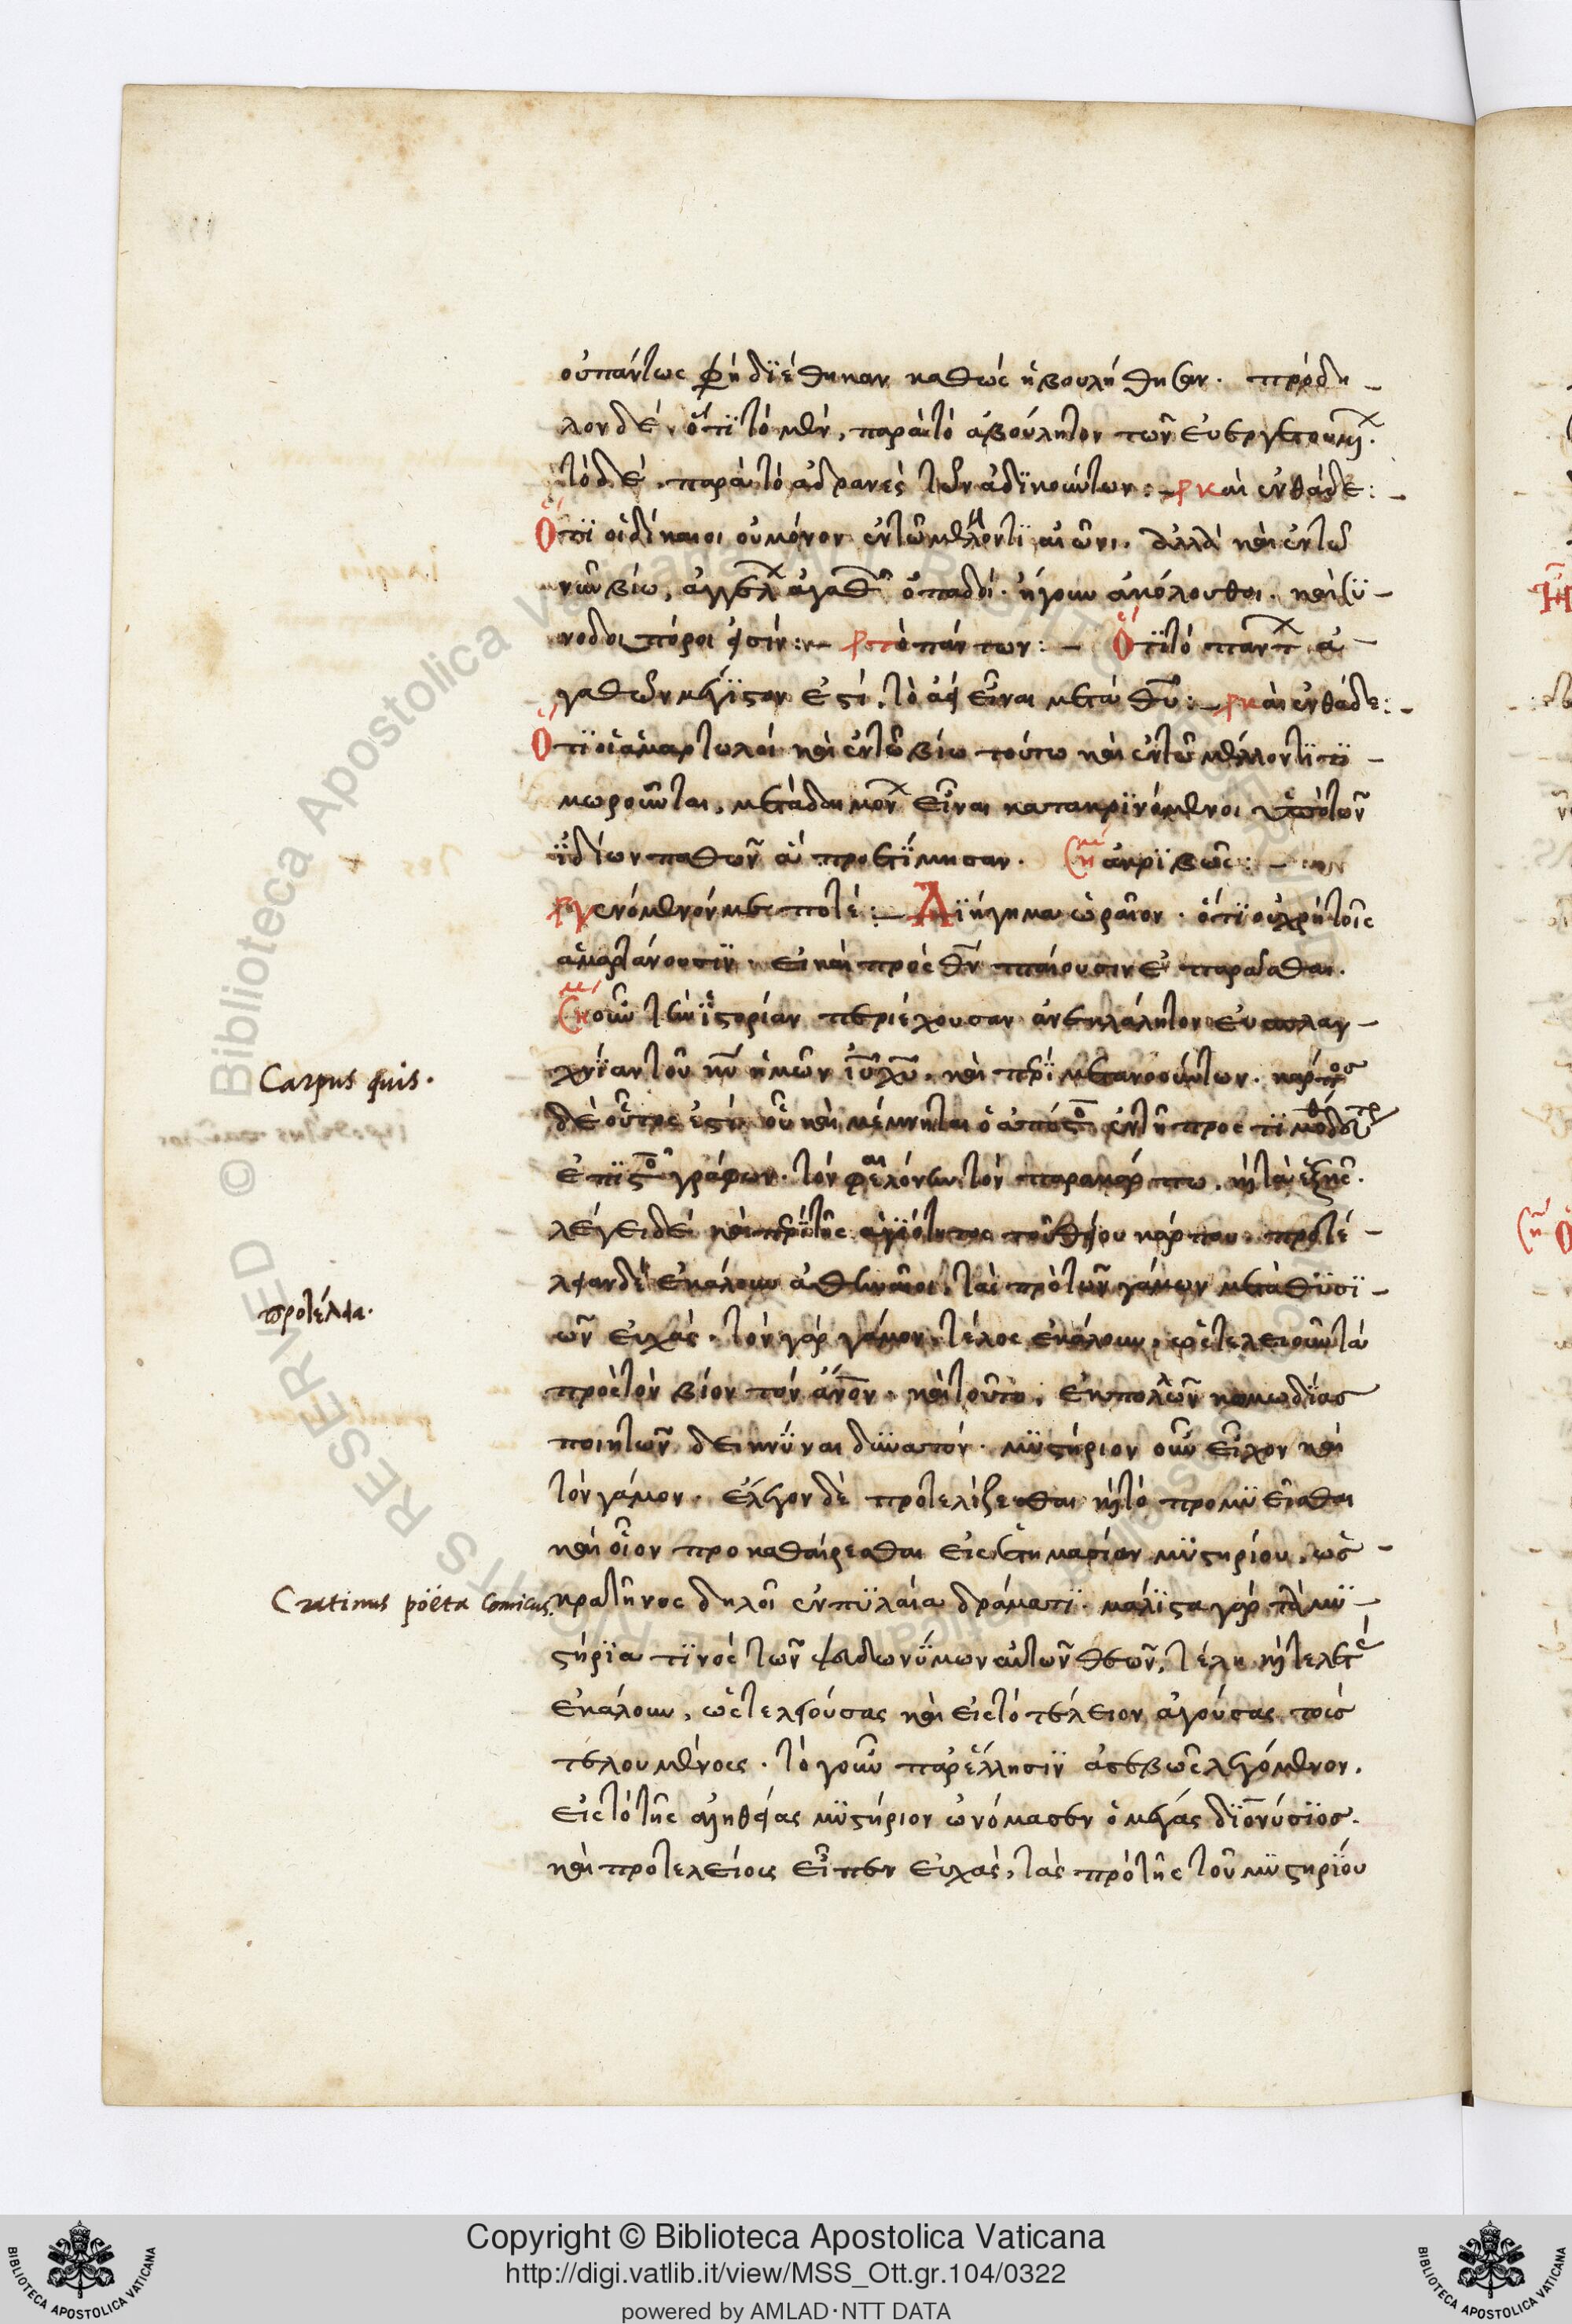 οὐ πάντως φη διέθηκαν καθὼς ἠβουλήθησαν. πρόδη-
λον δὲ, ὅτι τὸ μὲν, παρὰ τὸ ἀβούλητον τῶν εὐεργετουμ.
τὸ δὲ, παρὰ τὸ ἀδρανὲς τῶν ἀδικούντων :- καὶ ἐνθάδε :-
Ὅτι οἱ δίκαιοι οὐ μόνον ἐν τῷ μέλλοντι αἰῶνι, ἀλλὰ καὶ ἐν τῷ
νῦν βίω, ἀγγέλ ἀγαθῶν ὀπαδοὶ. ἤγουν ἀκόλουθοι. καὶ συ-
νοδοιπόροι εἰσίν :- τὸ πάντων :- Ὅτι τὸ πάντ ἀ-
γαθῶν μέγιστον ἐστὶ, τὸ ἀεὶ εἶναι μετὰ θυ :- καὶ ἐνθάδε :-
Ὅτι οἱ ἁμαρτωλοὶ καὶ ἐν τῷ βίω τούτω καὶ ἐν τῷ μέλλοντι τι-
μωροῦνται, μετὰ δαιμόν εἶναι κατακρινόμενοι ὑπὸ τῶν
ἰδίων παθῶν ἃ προετίμησαν. ἀκριβῶς :-
γενόμενόν με ποτέ :- Διήγημα ὡραῖον. ὅτι οὐ χρὴ τοῖς
ἁμαρτάνουσιν, εἰ καὶ πρὸς θν πταίουσιν ἐπαρᾶσθαι.
οὖν τὴν ἱστορίαν περιέχουσαν ἀνεκλάλητον εὐσπλαγ-
χνίαν τοῦ κυ ἡμῶν ιυ χυ. καὶ περὶ μετανοούντων. κάρπος
δὲ οὗτος ἐστὶν οὗ καὶ μέμνηται ὁ ἀπόστο ἐν τῇ προς τιμόθ δευτρ
ἐπιστο γράφων. τὸν φαιλόνην τὸν παρα κάρπω, καὶ τὰ ἑξῆς.
λέγει δὲ καὶ περὶ τῆς ἁγιότητος τοῦ θείου κάρπου. προτέ-
λεια δὲ ἐκάλουν ἀθηναῖοι, τὰς πρὸ τῶν γάμων μετὰ θυσι-
ῶν εὐχάς. τὸν γὰρ γάμον, τέλος ἐκάλουν, ὡς τελειοῦντα
πρὸς τὸν βίον τὸν ἄνον. καὶ τοῦτο, ἐκ πολλῶν κωμωδίας
ποιητῶν δεικνύναι δυνατόν. μυστήριον οὖν εἶχον καὶ
τὸν γάμον. ἔλεγον δὲ προτελίζεσθαι καὶ τὸ προμυεῖσθαι
καὶ οἷον προκαθαίρεσθαι εἰς ἑτοιμασίαν μυστηρίου, ὡς-
Carpus quis.
προτέλεια.
Cratinus poëta Comicus.
κρατῖνος δηλοῖ ἐν πυλαία δράματι. μάλιστα γὰρ τὰ μυ-
στήρια τινὸς τῶν ψευδωνύμων αὐτῶν θεῶν, τέλη καὶ τελετ
ἐκάλουν, ὡς τελειούσας καὶ εἰς τὸ τέλειον ἀγούσας τοὺς
τελουμένους. τὸ γοῦν παρ ἕλλησιν ἀσεβῶς λεγόμενον,
εἰς τὸ τῆς ἀληθείας μυστήριον ὠνόμασεν ὁ μέγας διονύσιος.
καὶ προτελείους εἶπεν εὐχὰς, τὰς πρὸ τῆς τοῦ μυστηρίου
Copyright © Biblioteca Apostolica Vaticana
http://digi.vatlib.it/view/MSS_Ott.gr.104/0322
powered by AMLAD·NTT DATA
BIBLIOTECA APOSTOLICA VATICANA
BIBLIOTECA APOSTOLICA VATICANA